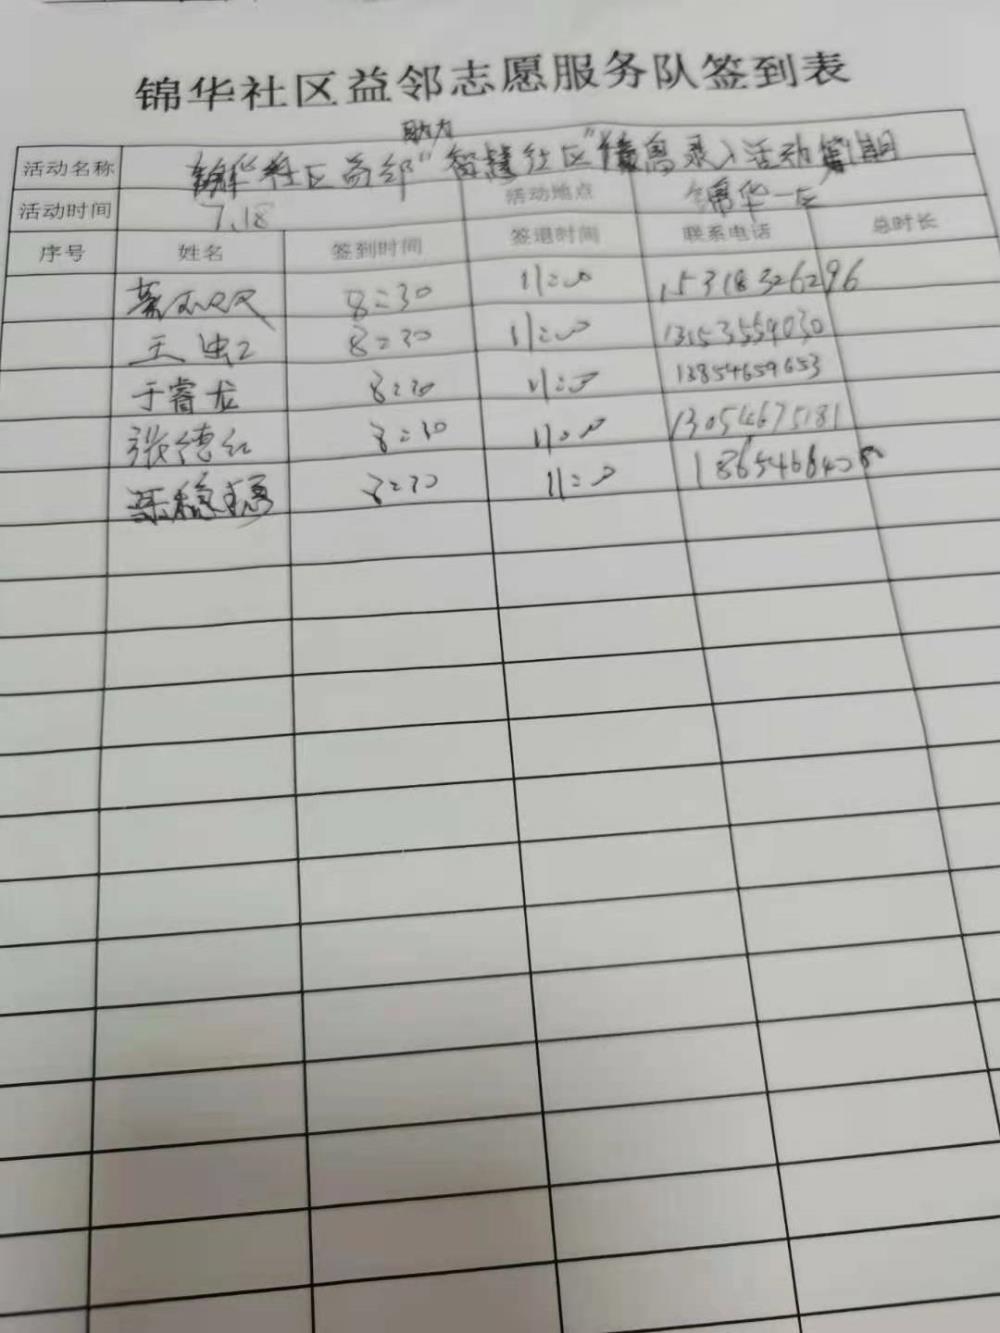 锦华社区益邻志愿服务队签到表
助力
活动名称 锦华社区益邻"智慧社区"信息录入活动第1期
活动时间 7.18 活动地点 锦华一区
序号 姓名 签到时间 签退时间 联系电话 总时长
8:30 11:00 15318326296
王忠 8:30 11:00 13153559030
于睿龙 8:30 11:00 13854659653
张德红 8:30 11:00 13054675181
8:30 11:00